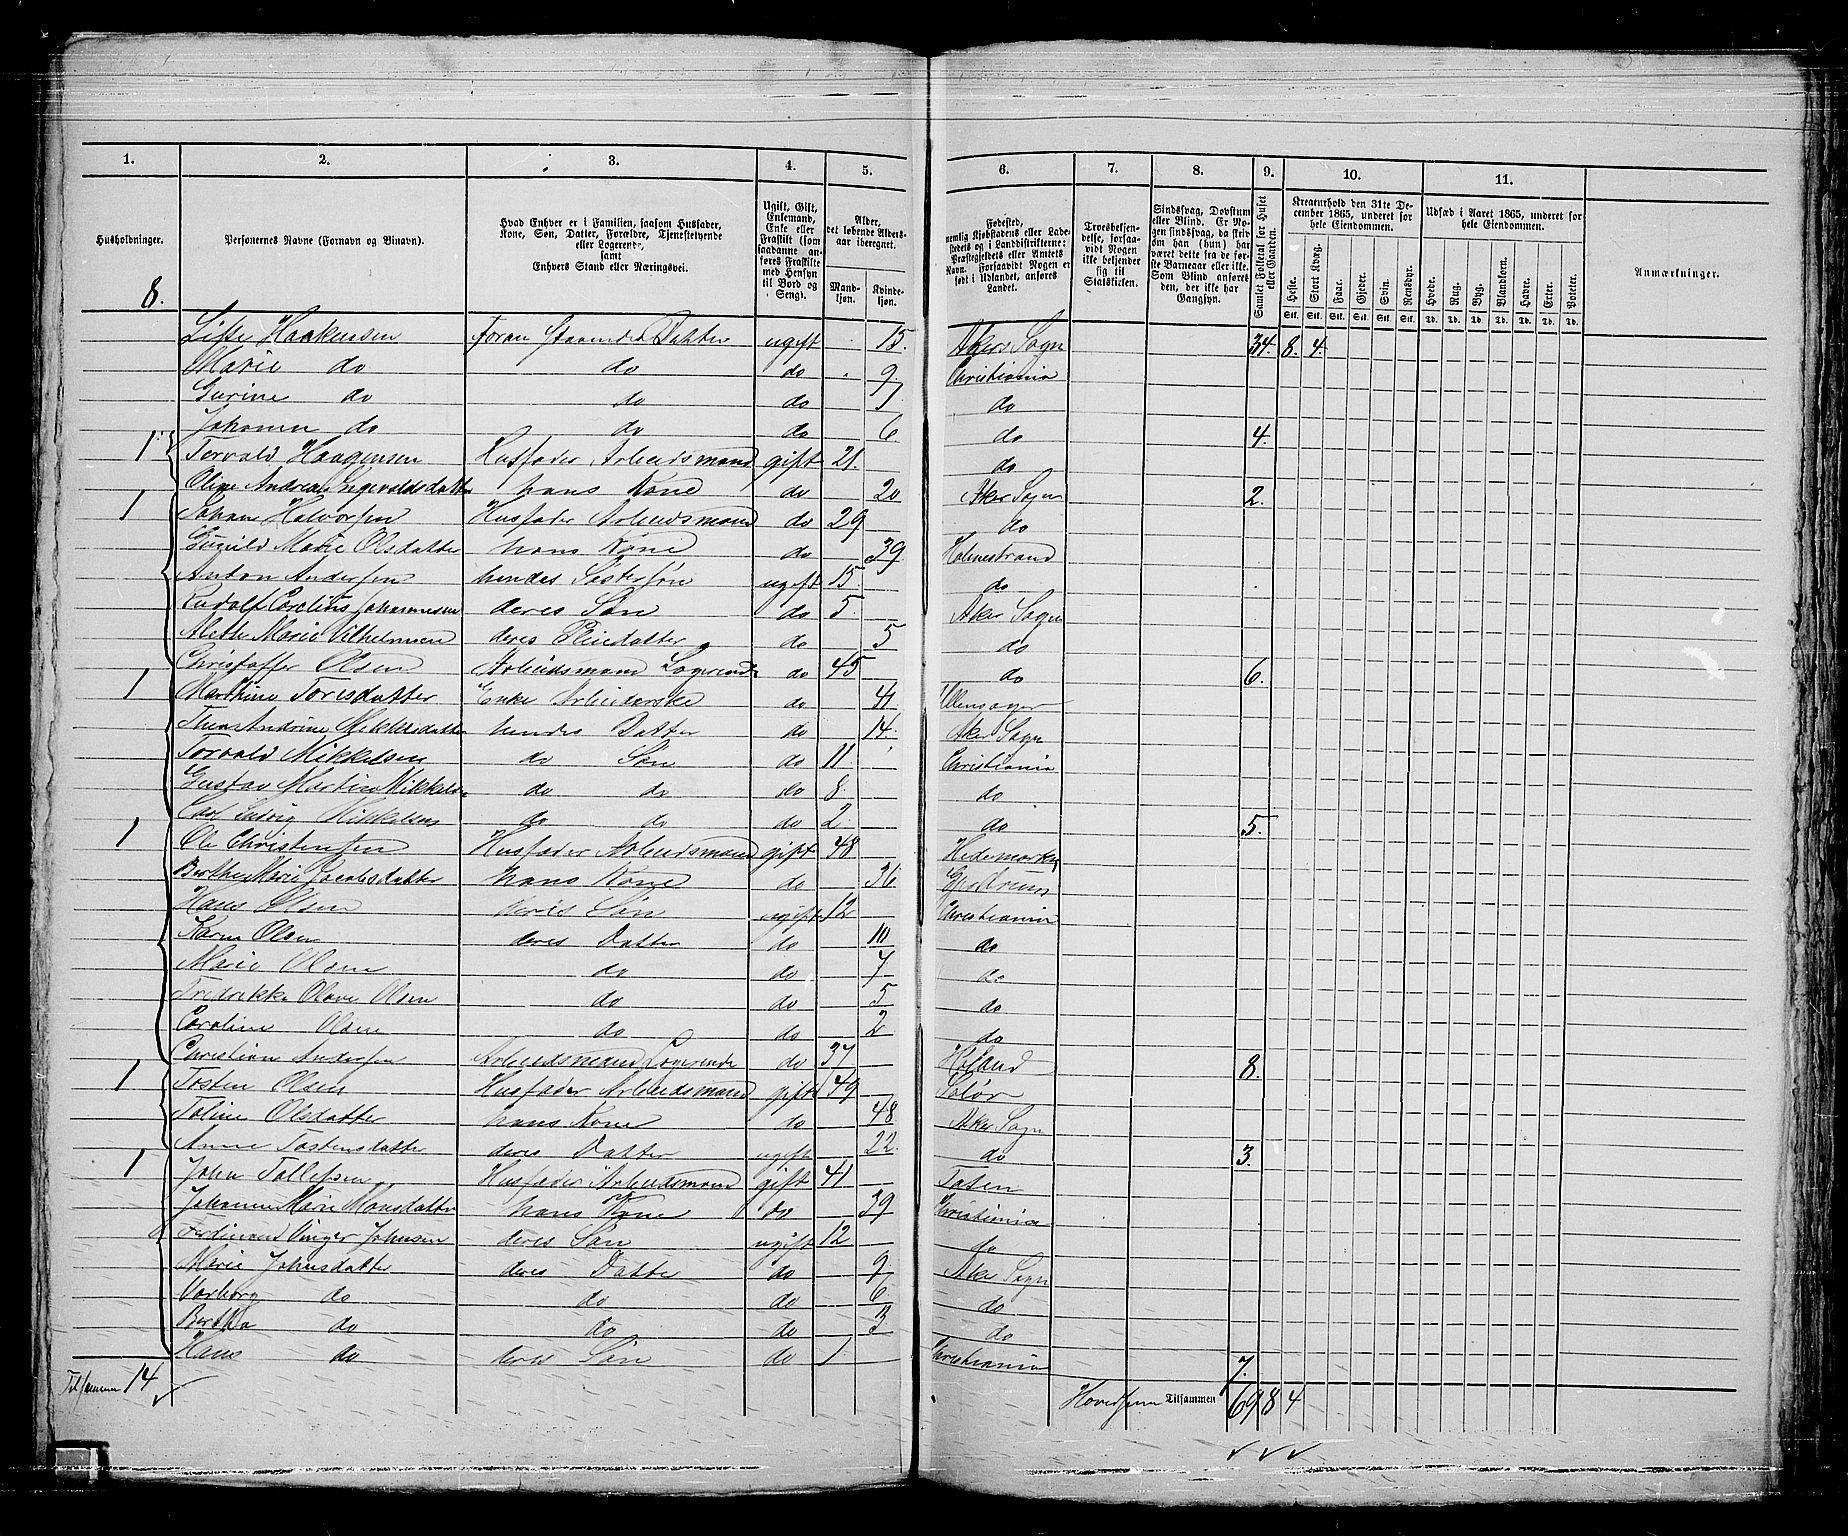 1. 2. 3. 4. 5. 6. 7. 8. 9. 10. 11.
Husholdninger.
Personernes Navne (Fornavn og Binavn).
Hvad Enhver er i Familien, saasom Husfader, Kone, Søn, Datter, Forældre, Tjenstetyende eller Logerende, samt Enhvers Stand eller Næringsvei.
Ugift, Gift, Enkemand, Enke eller Fraskilt (som saadanne anføres Fraskilte med Hensyn til Bord og Seng).
Alder, det løbende Alders-aar iberegnet.
Mand-kjøn. Kvinde-kjøn.
Fødested, nemlig Kjøbstadens eller Ladestedets og i Landdistrikterne: Præstegjeldets eller Amtets Navn. Forsaavidt Nogen er født i Udlandet, anføres Landet.
Troesbekjendelse, forsaavidt Nogen ikke bekjender sig til Statskirken.
Sindssvag, Døvstum eller Blind. Er Nogen sindssvag, da skriv om han (hun) har været dette fra de første Barneaar eller ikke. Som Blind anføres den, der ikke har Gangsyn.
Samlet Folketal for Huset eller Gaarden.
Kreaturhold den 31te December 1865, underet for hele Eiendommen.
Heste. Stort Kvæg. Faar. Gjeder. Svin. Rensdyr.
Udsæd i Aaret 1865, underet for hele Eiendommen.
Hvede. Rug. Byg. Blandkorn. Havre. Erter. Poteter.
Anmærkninger.
8.
Haakensen Datter ugift 15. Akers Sogn 34. 8. 4.
Marie do do do 9 Christiania
Gurine do do do 7 do
Johanne do do do 6 do 4.
1 Torvald Haagensen Husfader Arbeidsmand gift 21. do
Oline Andrea Ingevaldsdatter hans Kone do 20 Aker Sogn 2.
1 Johan Halvorsen Husfader Arbeidsmand do 29 do
Gunild Marie Olsdatter hans Kone do 39 Holmestrand
Anton Andersen hendes Søstersøn ugift 15. do
Rudolf Corelius Johannesen deres Søn do 5. Aker Sogn
Alette Marie Vilhelmsen deres Pleiedatter do 5 do
Christoffer Olsen Arbeidsmand Logerende do 45 do 6.
1 Marthine Toresdatter Enke Arbeiderske do 41 Ullensager
Thea Andrine Mikkelsdatter hendes Datter do 14. Aker Sogn
Torvald Mikkelsen do Søn do 11 Christiania
Gustav Martin Mikkelsen do do do 8 do
Carl Ludvig Mikkelsen do do do 2. do 5.
1 Ole Christensen Husfader Arbeidsmand gift 48 Hedemarken
Berthe Marie Jacobsdatter hans Kone do 36
Hans Olsen deres Søn ugift 12 Christiania
Karen Olsen deres Datter do 10 do
Marie Olsen do do 7 do
Fredrikke Olave Olsen do do 5 do
Caroline Olsen do do 2 do
Christian Andersen Arbeidsmand Logerende do 37 Høland 8.
1 Tosten Olsen Husfader Arbeidsmand gift 49 Solør
Toline Olsdatter hans Kone do 48 Aker Sogn
Anne Tostensdatter deres Datter ugift 22. do 3.
1 John Tollefsen Husfader Arbeidsmand gift 41 Toten
Johanne Marie Monsdatter hans Kone do 39 Christiania
Ferdinand Vinger Johnsen deres Søn ugift 12 do
Marie Johnsdatter deres Datter do 9 Aker Sogn
Vorborg do do do 6 do
Bertha do do do 3 do
Hans do deres Søn do 1 Christiania 7.
Tilsammen 14
Tilsammen 69 8 4